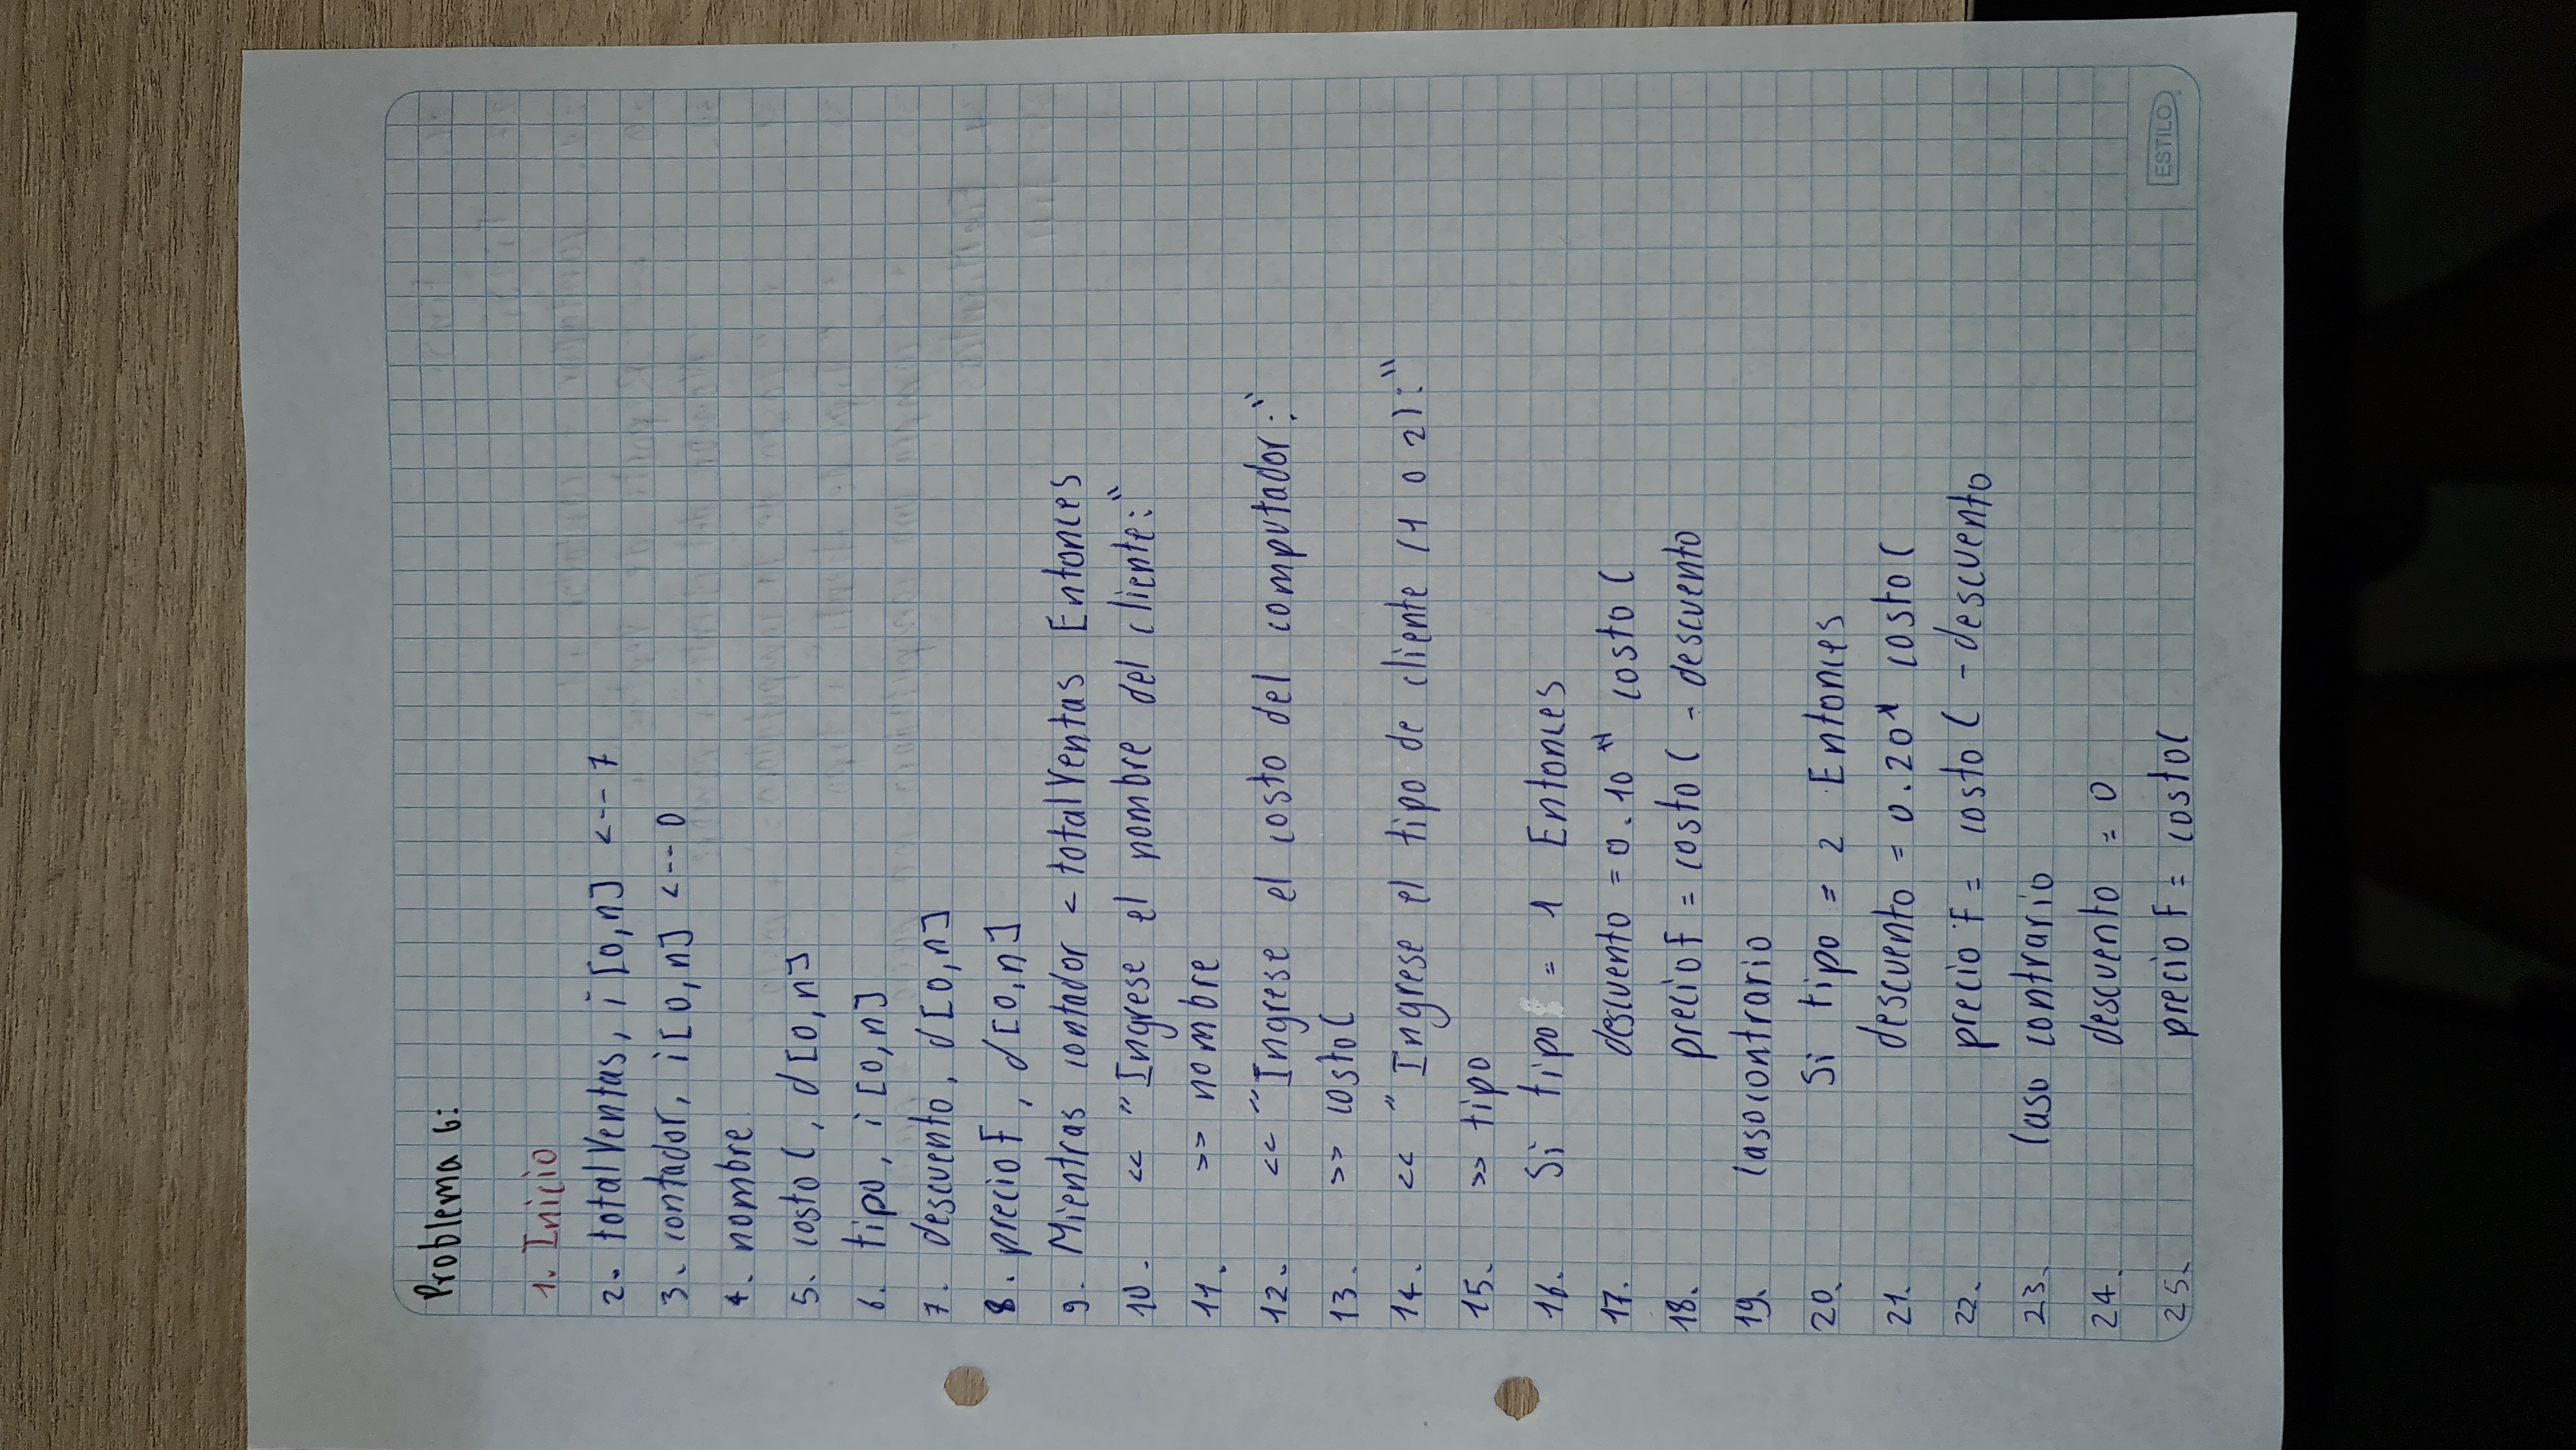 Problema 6:
1. Inicio
2. totalVentas, i [0,n] <--- 7
3. contador, i [0,n] <--- 0
4. nombre
5. costoC, d [0,n]
6. tipo, i [0,n]
7. descuento, d [0,n]
8. precioF, d [0,n]
9. Mientras contador < totalVentas Entonces
10. << "Ingrese el nombre del cliente:"
11. >> nombre
12. << "Ingrese el costo del computador:"
13. >> costoC
14. << "Ingrese el tipo de cliente (1 o 2):"
15. >> tipo
16. Si tipo = 1 Entonces
17. descuento = 0.10 * costoC
18. precioF = costoC - descuento
19. Casocontrario
20. Si tipo = 2 Entonces
21. descuento = 0.20* costoC
22. precioF = costoC - descuento
23. Caso contrario
24. descuento = 0
25. precioF = costoC
ESTILO